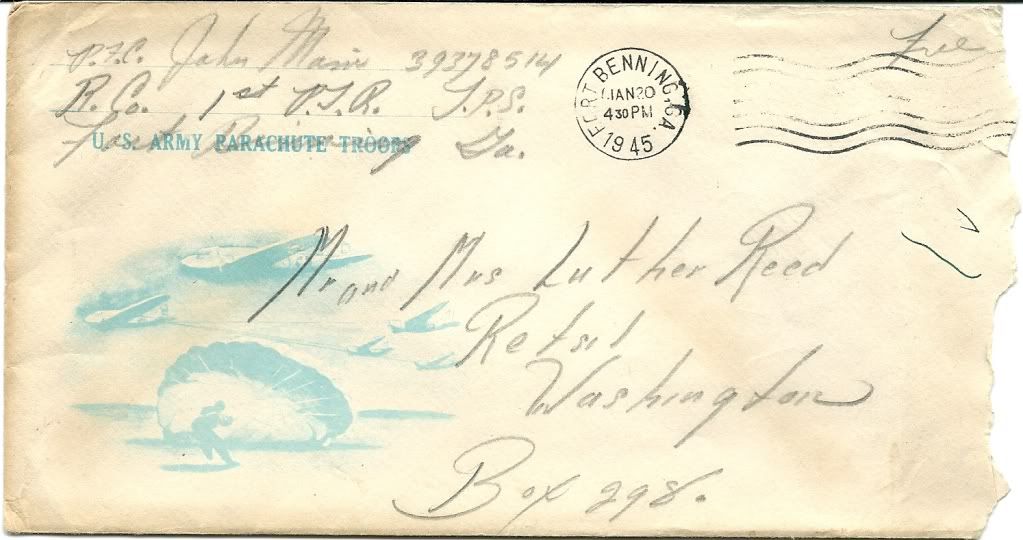 P.F.C. John Masir 39378514
R. Co. 1st P.T.R. T.P.S.
Fort Benning Ga.
U. S. ARMY PARACHUTE TROOPS
FORT BENNING, GA.
JAN 20
4 30 PM
1945
Free
Mr and Mrs Luther Reed
Retsil
Washington
Box 298.